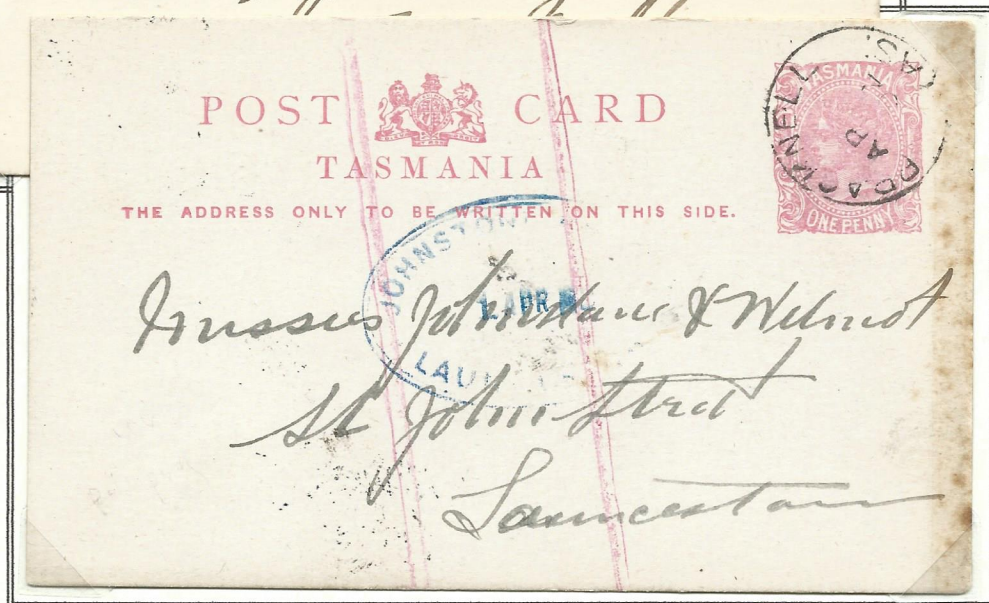 POST CARD
TASMANIA
THE ADDRESS ONLY TO BE WRITTEN ON THIS SIDE.
TASMANIA
ONE PENNY
BRACKNELL
AP
TAS.
JOHNSTONE
APR
LAU
Messrs Johnstone & Wilmot
St John Street
Launceston